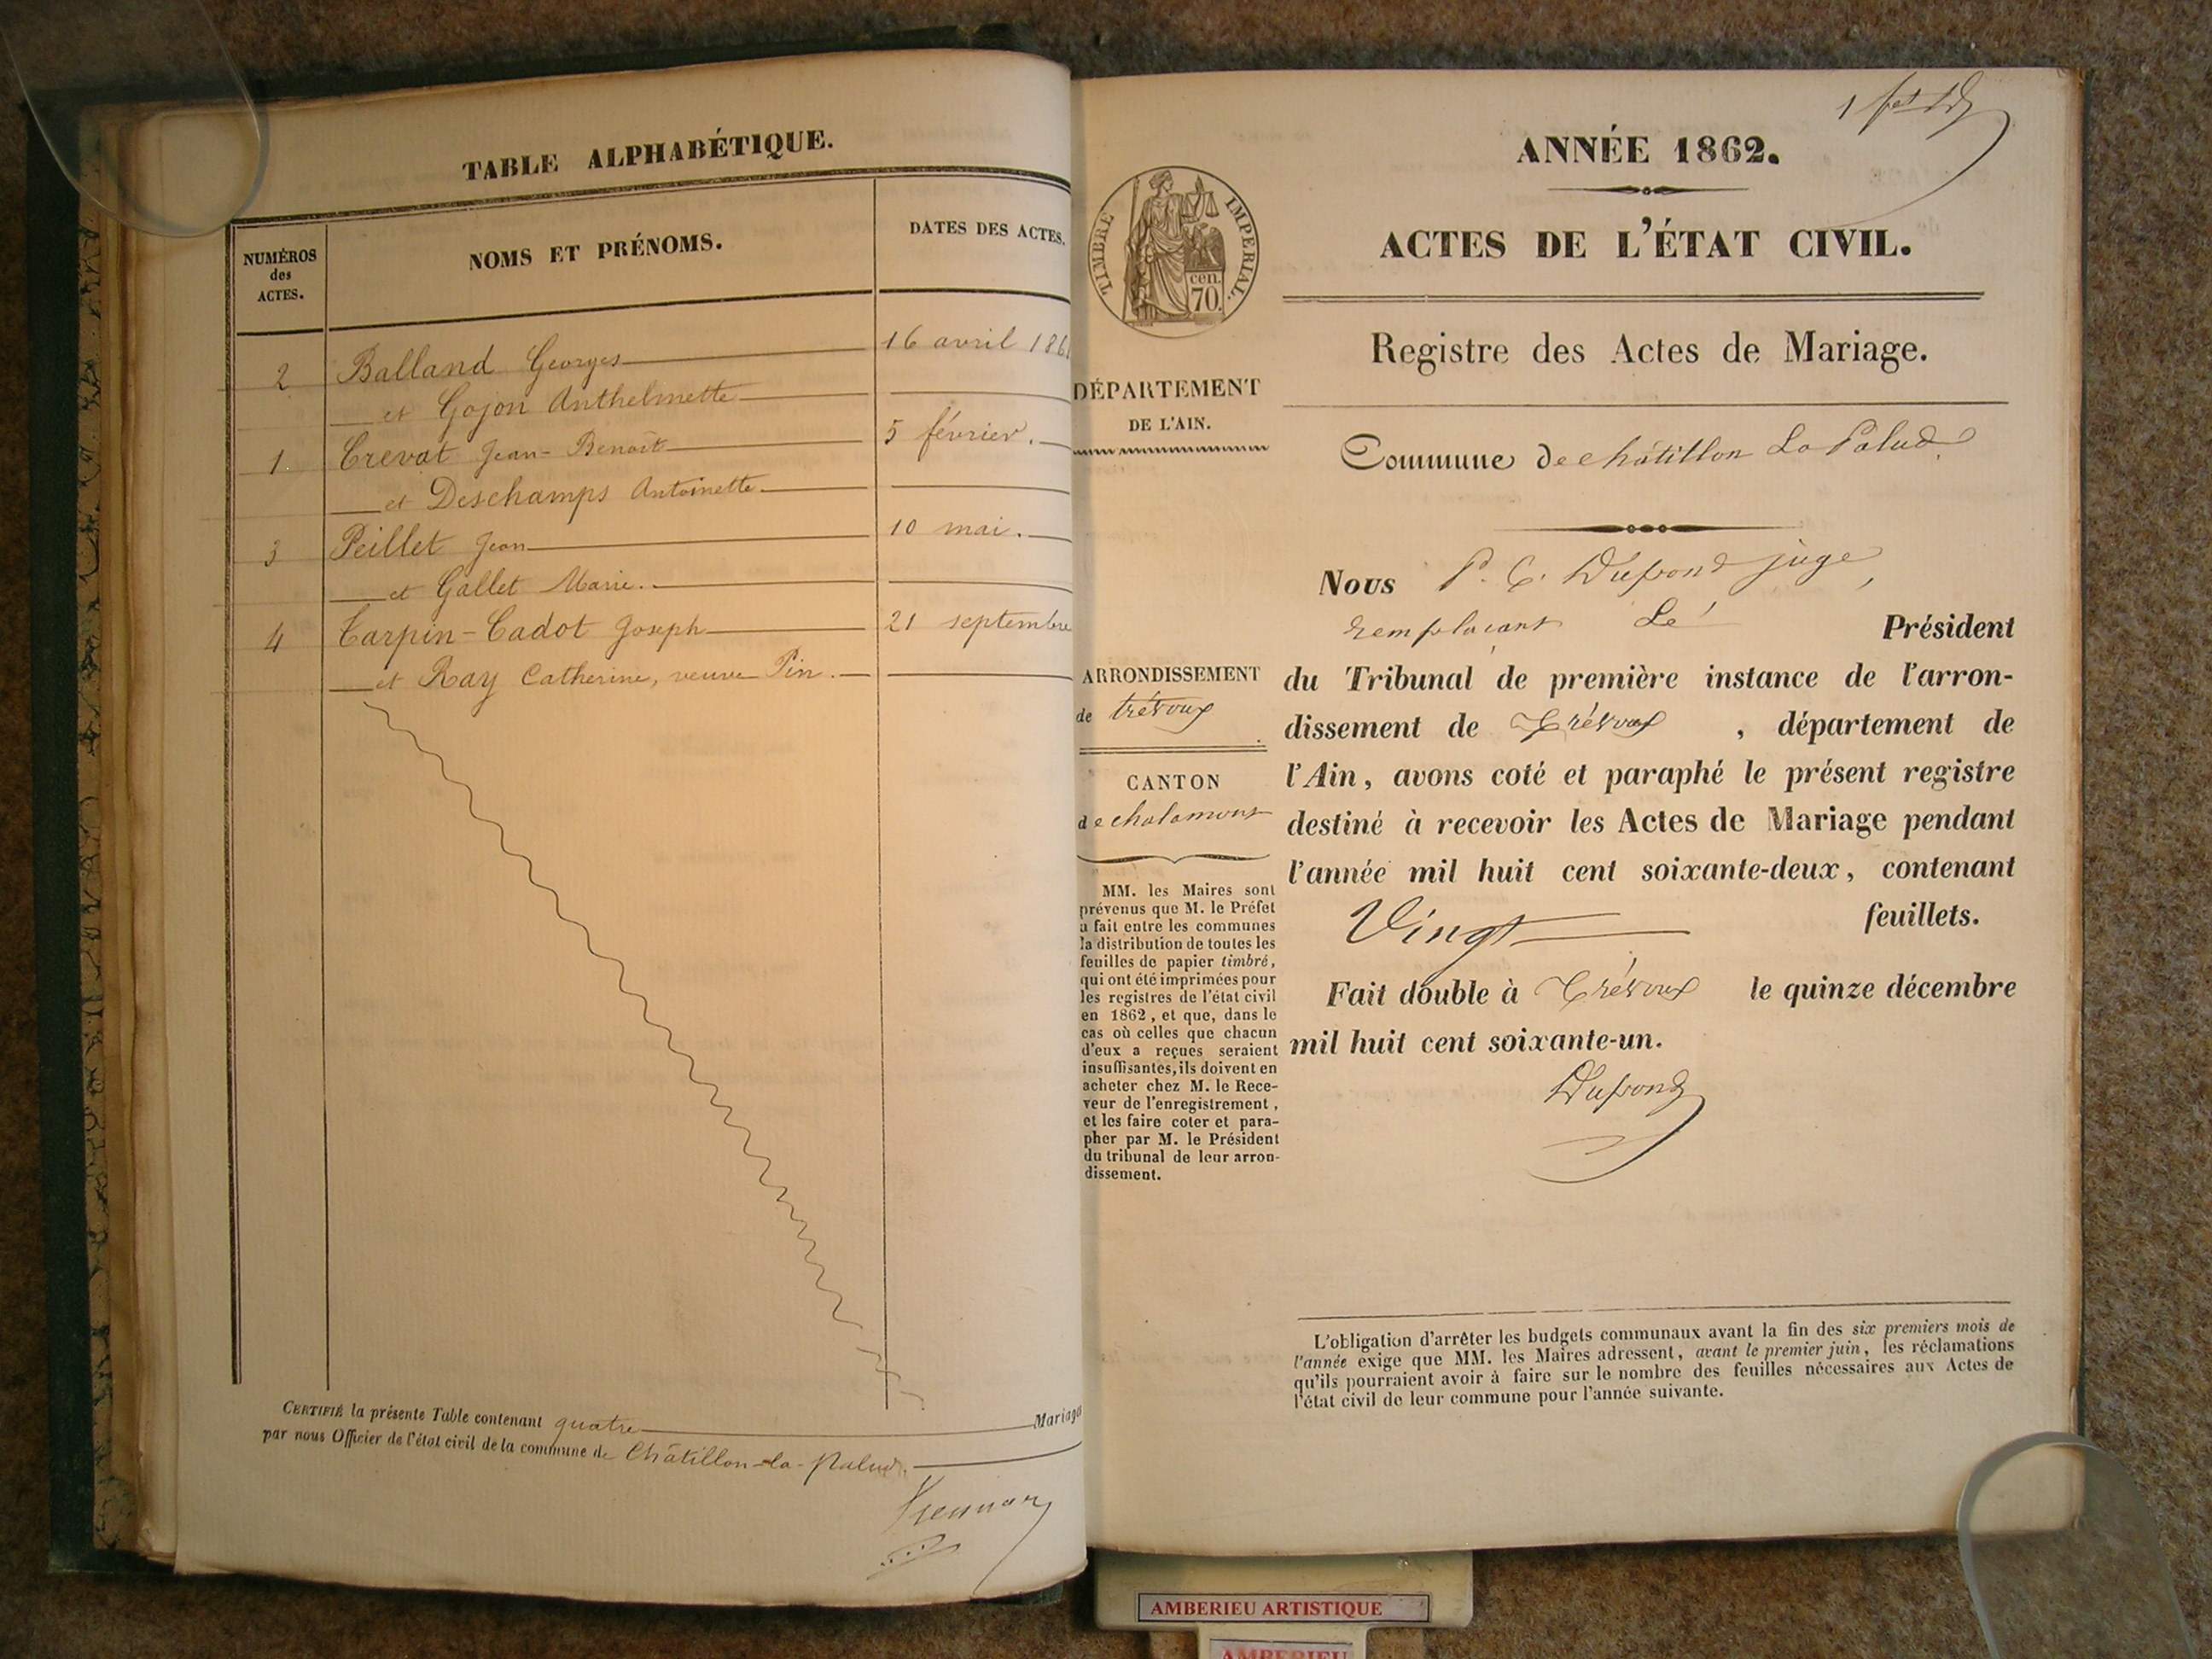 TABLE ALPHABÉTIQUE.
NUMÉROS
des
ACTES.
NOMS ET PRÉNOMS.
DATES DES ACTES.
2 Balland Georges 16 avril
et Gojon Anthelmette
1 Crevat Jean-Benoît 5 février.
et Deschamps Antoinette
3 Peillet Jean 10 mai.
et Gallet Marie.
4 Carpin-Cadot Joseph 21 septembre
et Ray Catherine, veuve Pin.
CERTIFIÉ la présente Table contenant quatre Mariages
par nous Officier de l'état civil de la commune de Châtillon-la-Palud.
TIMBRE IMPERIAL.
cen.
70.
DÉPARTEMENT
DE L'AIN.
ARRONDISSEMENT
de trévoux
CANTON
de chalamont
MM. les Maires sont
prévenus que M. le Préfet
a fait entre les communes
la distribution de toutes les
feuilles de papier timbré,
qui ont été imprimées pour
les registres de l'état civil
en 1862, et que, dans le
cas où celles que chacun
d'eux a reçues seraient
insuffisantes, ils doivent en
acheter chez M. le Rece-
veur de l'enregistrement,
et les faire coter et para-
pher par M. le Président
du tribunal de leur arron-
dissement.
ANNÉE 1862.
ACTES DE L'ÉTAT CIVIL.
Registre des Actes de Mariage.
Commune de châtillon La Palud.
Nous P. C. Dupond juge,
remplaçant Le Président
du Tribunal de première instance de l'arron-
dissement de Trévoux, département de
l'Ain, avons coté et paraphé le présent registre
destiné à recevoir les Actes de Mariage pendant
l'année mil huit cent soixante-deux, contenant
Vingt feuillets.
Fait double à Trévoux le quinze décembre
mil huit cent soixante-un.
Dupond
L'obligation d'arrêter les budgets communaux avant la fin des six premiers mois de
l'année exige que MM. les Maires adressent, avant le premier juin, les réclamations
qu'ils pourraient avoir à faire sur le nombre des feuilles nécessaires aux Actes de
l'état civil de leur commune pour l'année suivante.
AMBERIEU ARTISTIQUE
AMBERIEU